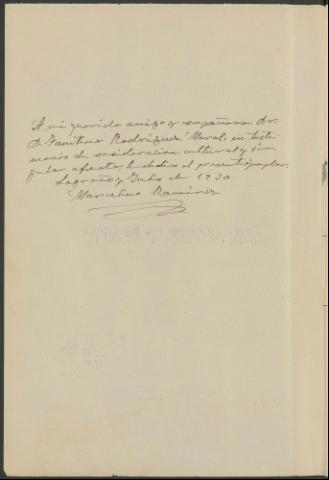 A mi querido amigo y compañero Dr.
D. Faustino Rodríguez Moral, en testi
monio de consideración cultural y sin
gular afecto, le dedica el presente ejemplar.
Logroño y Julio de 1930
Marcelino Ramírez